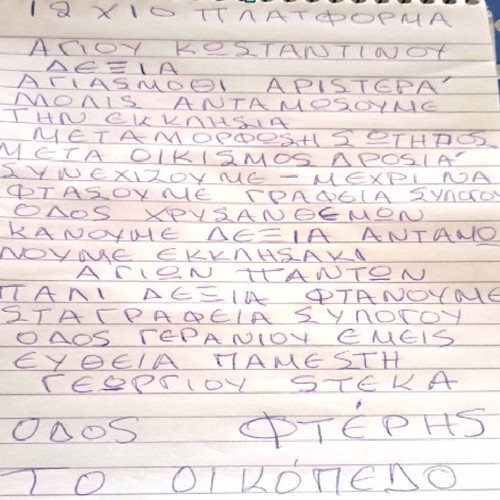 12 Χ 10 ΠΛΑΤΦΟΡΜΑ
ΑΓΙΟΥ ΚΩΣΤΑΝΤΙΝΟΥ
ΔΕΞΙΑ
ΑΓΙΑΣΜΟΘΙ ΑΡΙSΤΕΡΑ'
ΜΟΛΙS ΑΝΤΑΜΟΣΟΥΜΕ
ΤΗΝ ΕΚΚΛΗSΙΑ
ΜΕΤΑΜΟΡΦΩSΗ SΩΤΗΡΟS
ΜΕΤΑ ΟΙΚΙSΜΟS ΔΡΟSΙΑ'
ΣΥΝΕΧΙΖΟΥΜΕ - ΜΕΧΡΙ ΝΑ
ΦΤΑSΟΥΜΕ ΓΡΑΦΕΙΑ SΥΛΟΓΟΥ
ΟΔΟS ΧΡΥSΑΝΘΕΜΩΝ
ΚΑΝΟΥΜΕ ΔΕΞΙΑ ΑΝΤΑΜΩ
ΝΟΥΜΕ ΕΚΚΛΗSΑΚΙ
ΑΓΙΩΝ ΠΑΝΤΩΝ
ΠΑΛΙ ΔΕΞΙΑ ΦΤΑΝΟΥΜΕ
SΤΑ ΓΡΑΦΕΙΑ SΥΛΟΓΟΥ
ΟΔΟS ΓΕΡΑΝΙΟΥ ΕΜΕΙS
ΕΥΘΕΙΑ ΠΑΜΕ SΤΗ
ΓΕΩΡΓΙΟΥ SΤΕΚΑ
ΟΔΟS ΦΤΈΡΗS
ΤΟ ΟΙΚΌΠΕΔΟ